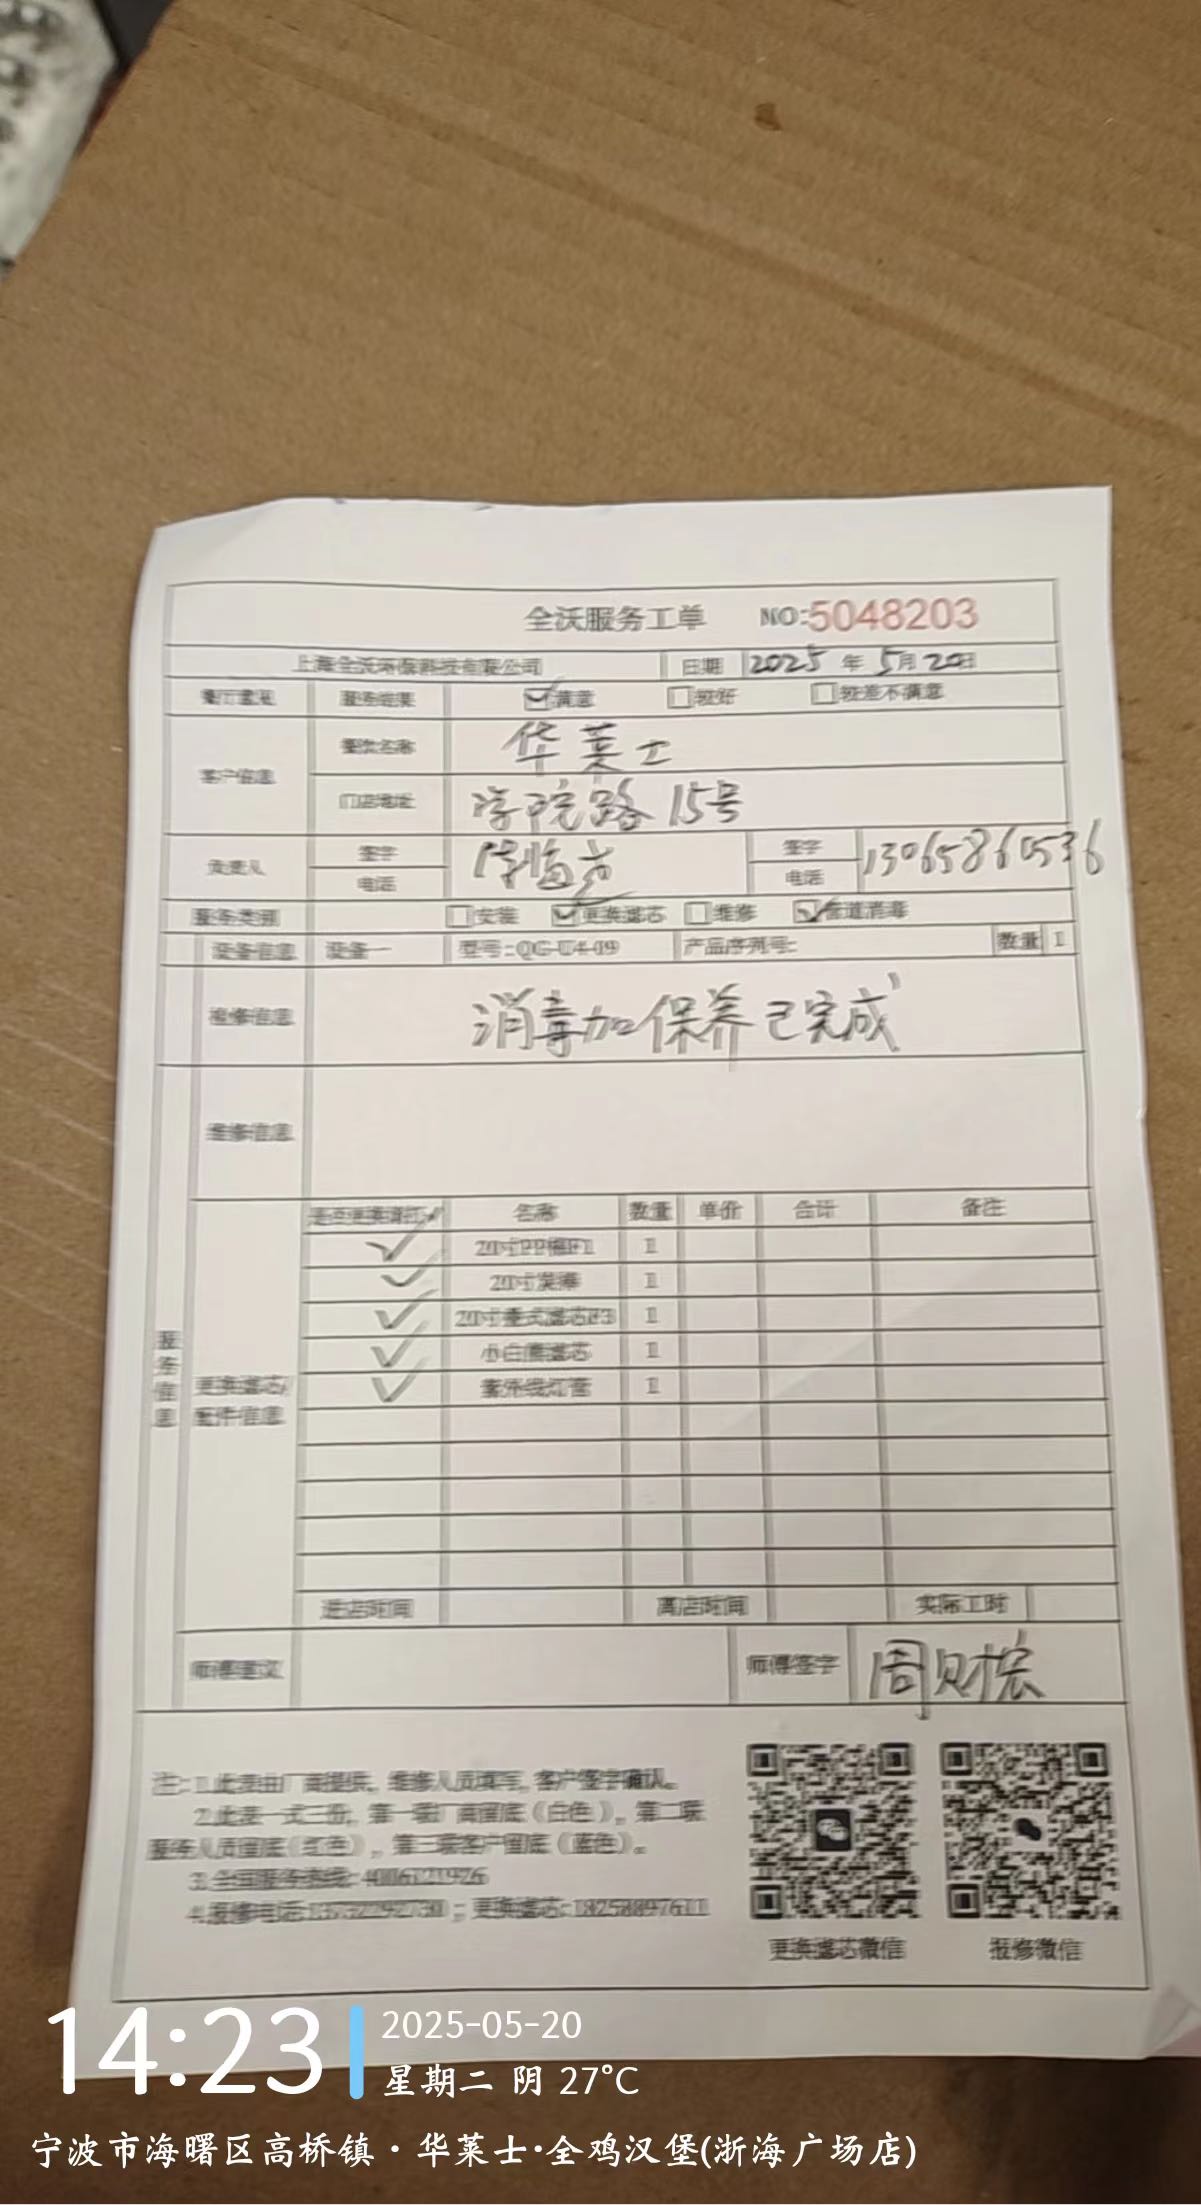 全沃服务工单 NO:5048203
上海全沃环保科技有限公司 日期 2025 年 5月 20日
餐厅意见 服务结果 满意 较好 较差不满意
客户信息 餐饮名称 华莱士
门店地址 学院路15号
负责人 签字 签字
电话 电话 13065860536
服务类别 安装 更换滤芯 维修 管道消毒
设备信息 设备一 型号:QG-U4-09 产品序列号: 数量 1
检修信息 消毒加保养已完成
维修信息
服务信息
更换滤芯/配件信息
是否更换请打✓ 名称 数量 单价 合计 备注
✓ 20寸PP棉F1 1
✓ 20寸炭棒 1
✓ 20寸叠式滤芯F3 1
✓ 小白熊滤芯 1
✓ 紫外线灯管 1
进店时间 离店时间 实际工时
师傅建议 师傅签字 周财宏
注:1.此表由厂商提供, 维修人员填写, 客户签字确认。
2.此表一式三份, 第一联厂商留底(白色), 第二联
服务人员留底(红色), 第三联客户留底(蓝色)。
3.全国服务热线: 4006121926
4.报修电话:13732292730 ; 更换滤芯:18258897611
更换滤芯微信 报修微信
14:23 2025-05-20
星期二 阴 27℃
宁波市海曙区高桥镇·华莱士·全鸡汉堡(浙海广场店)